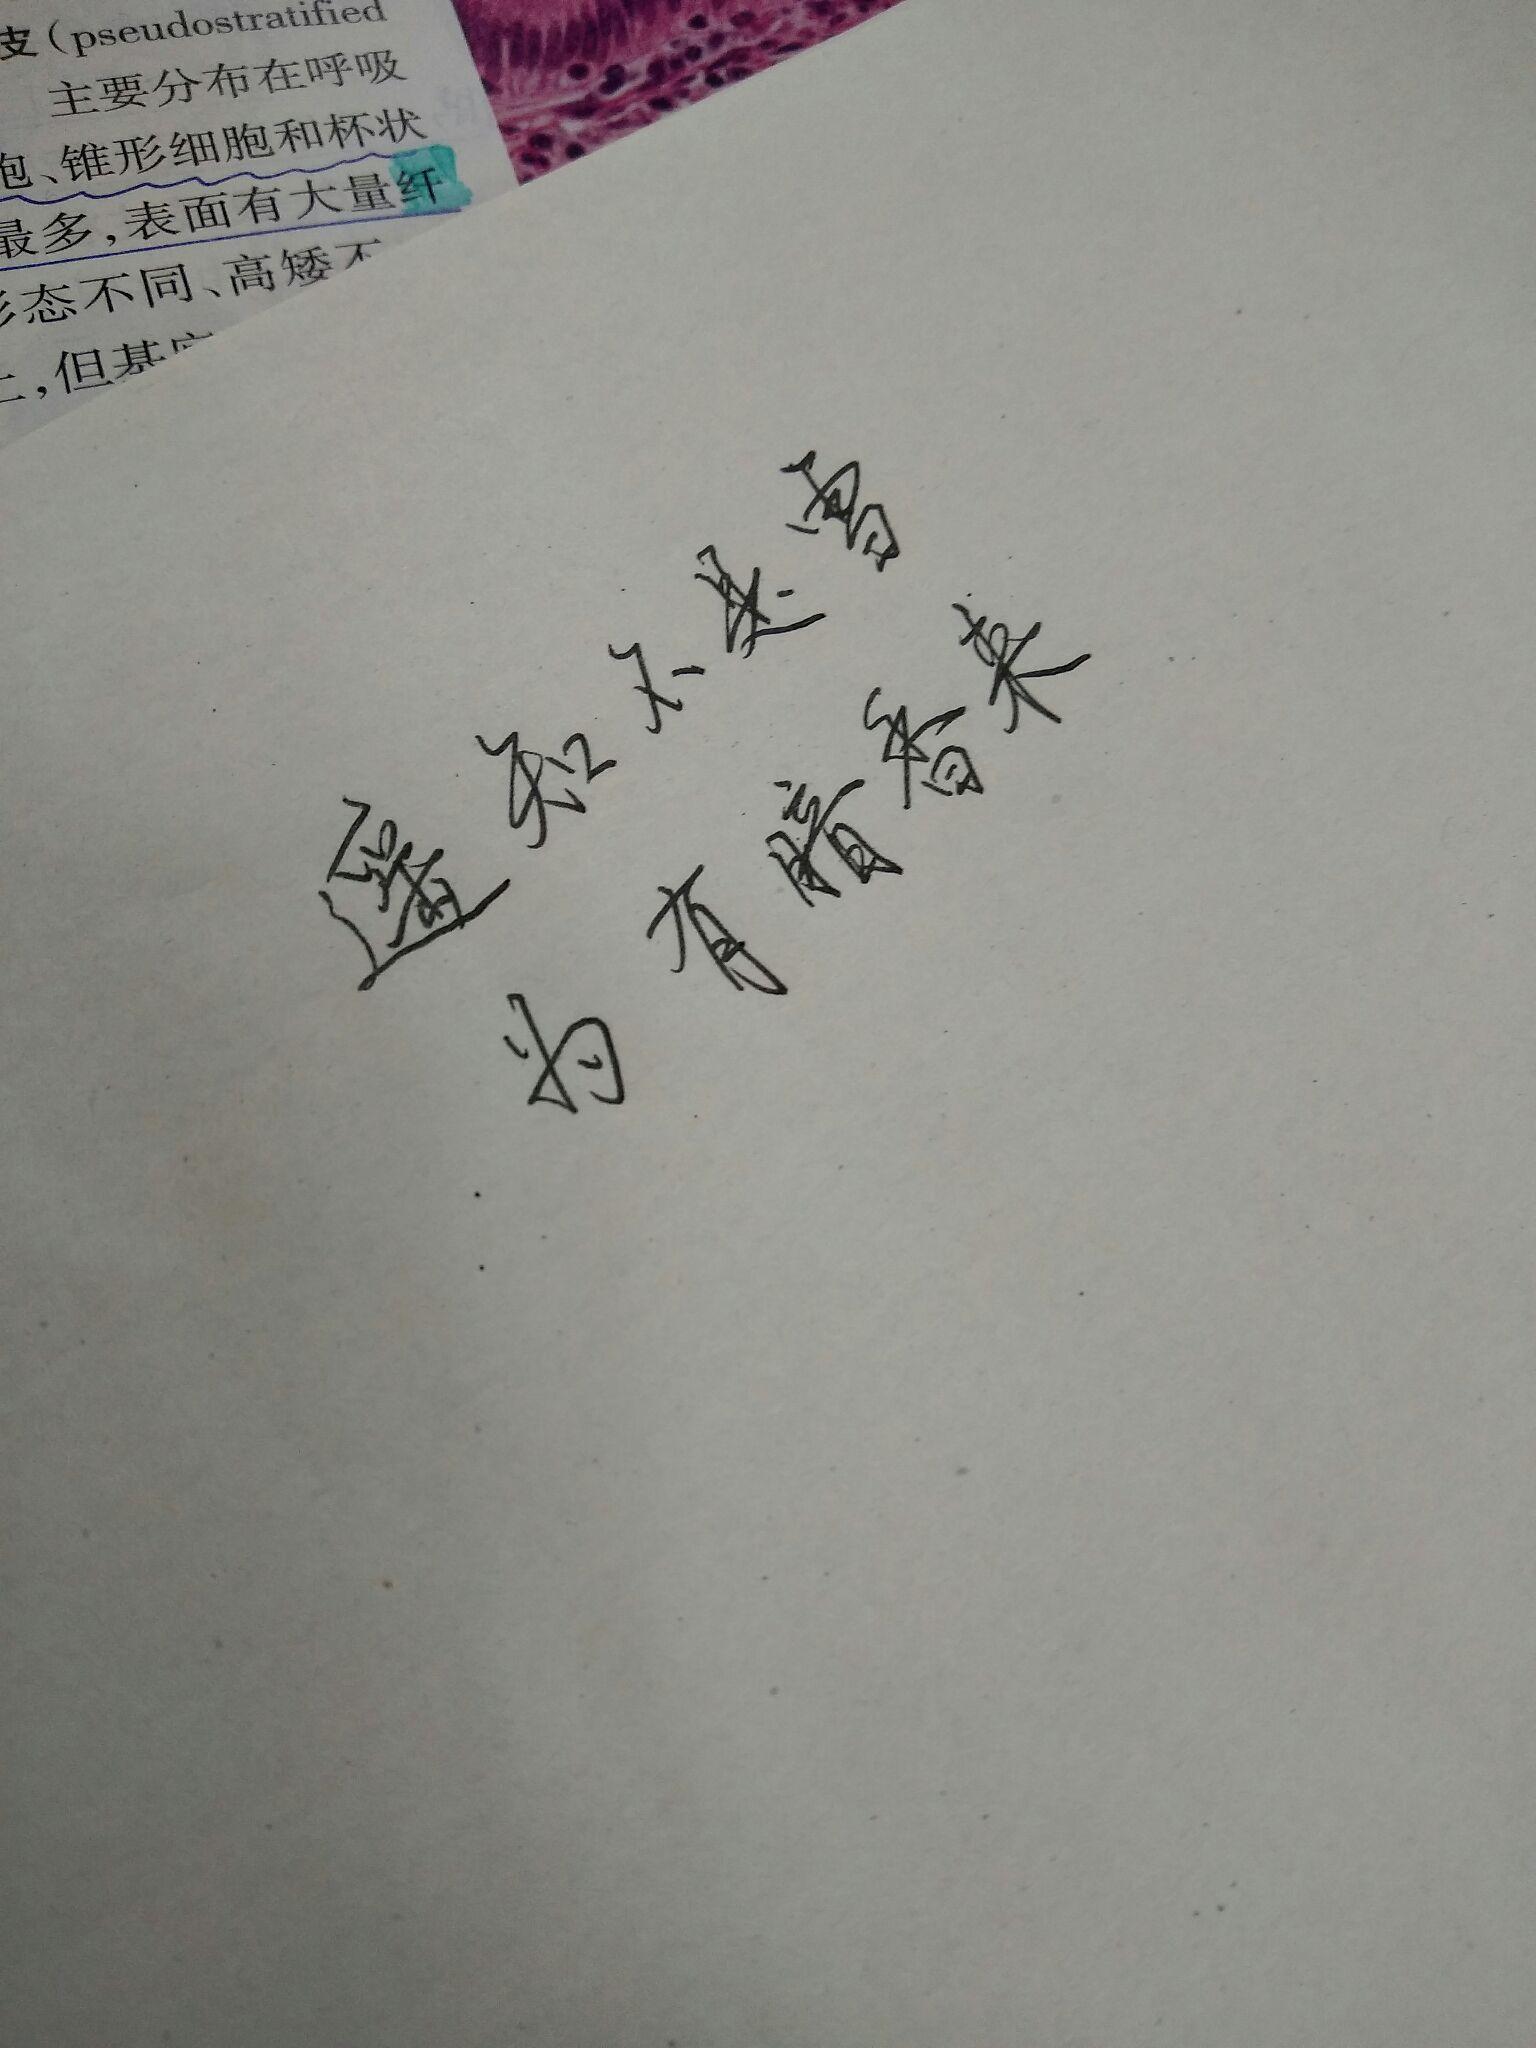 支(pseudostratified
主要分布在呼吸
胞、锥形细胞和杯状
最多,表面有大量纤
形态不同、高矮不
上,但基底
遥知不是雪
为有暗香来